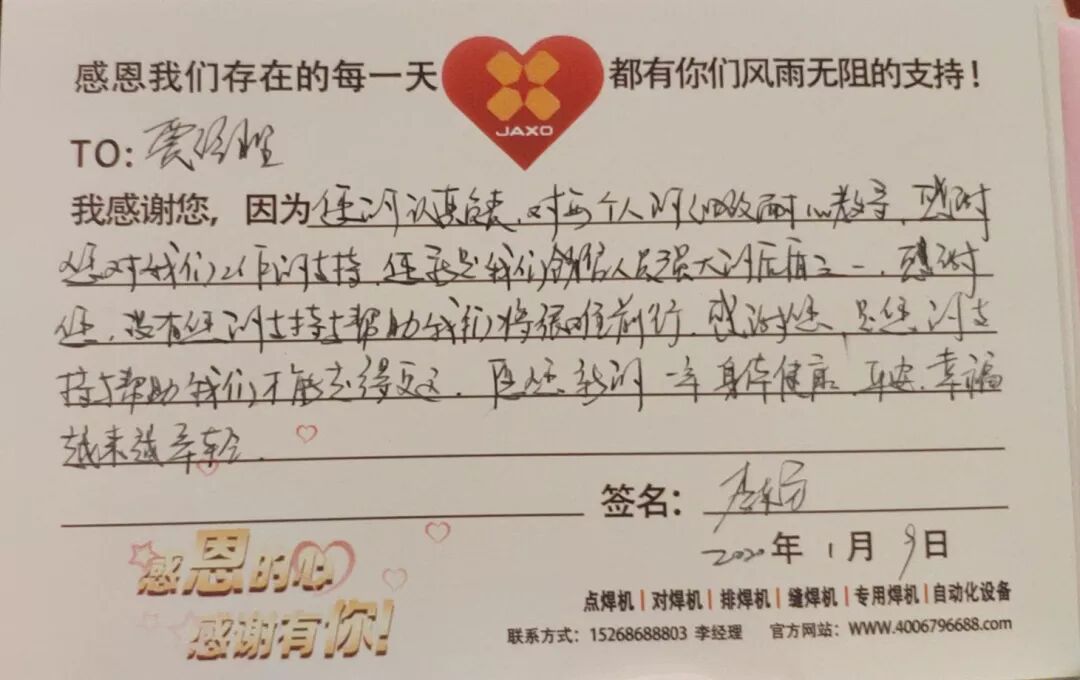 感恩我们存在的每一天
JAXO
都有你们风雨无阻的支持！
TO: 贾经理
我感谢您，因为 您的认真负责、对每个人的细致耐心教导、感谢
您对我们工作的支持、您就是我们销售人员强大的后盾之一、感谢
您、没有您的支持与帮助我们将很难前行、感谢您、是您的支
持与帮助我们才能走得更远、 新的一年身体健康、平安、幸福
越来越年轻、
签名：
2020年 1月 9日
感恩的心
感谢有你!
点焊机 | 对焊机 | 排焊机 | 缝焊机 | 专用焊机 | 自动化设备
联系方式：15268688803 李经理 官方网站：WWW.4006796688.com